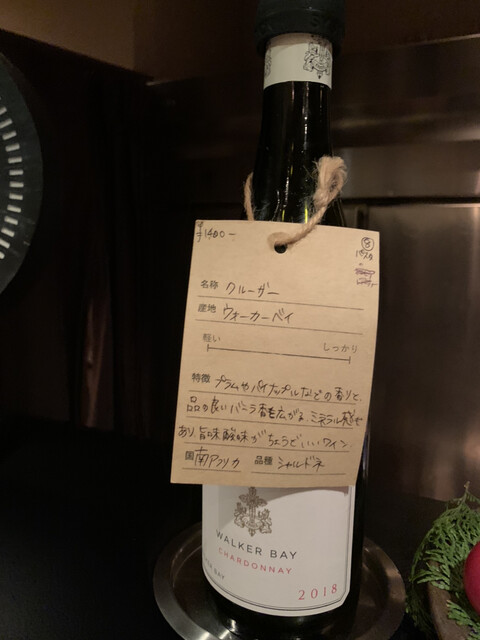 ¥1400-
名称 クルーガー
産地 ウォーカーベイ
軽い しっかり
特徴 プラムやパイナップルなどの香りと、
品の良いバニラ香も広がる。ミネラル感が
あり、旨味酸味がちょうどいいワイン。
国 南アフリカ 品種 シャルドネ
WALKER BAY
CHARDONNAY
BAY
2018